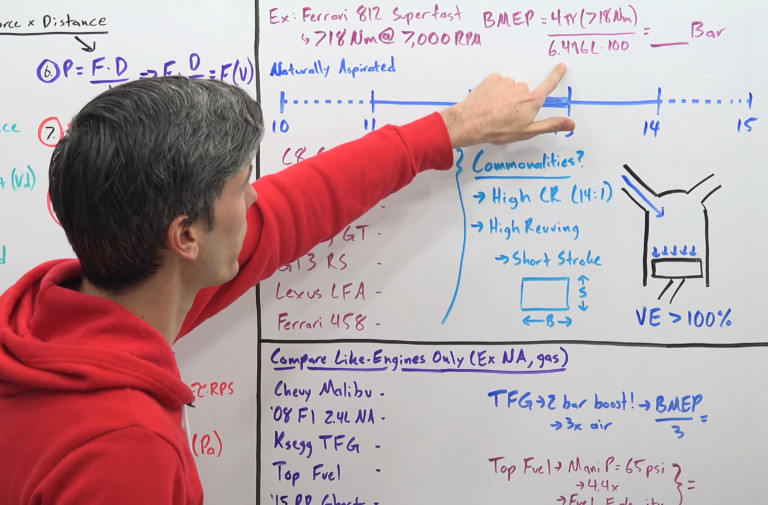 x Distance
6. P = F·D => F. D = F(V)
7.
(Vd)
RPS
(Pa)
Ex: Ferrari 812 Superfast
↳ 718 Nm @ 7,000 RPM
BMEP = 4π(718 Nm) / 6.496L·100 = ___ Bar
Naturally Aspirated
10 11 14 15
GT
GT3 RS
Lexus LFA -
Ferrari 458 -
Commonalities?
→ High CR (14:1)
→ High Revving
→ Short Stroke
S
B
VE > 100%
Compare Like-Engines Only (Ex NA, gas)
Chevy Malibu -
'08 F1 2.4L NA -
Ksegg TFG -
Top Fuel -
TFG → 2 bar boost! → BMEP / 3 =
→ 3x air
Top Fuel → Mani P = 65psi
→ 4.4x
=